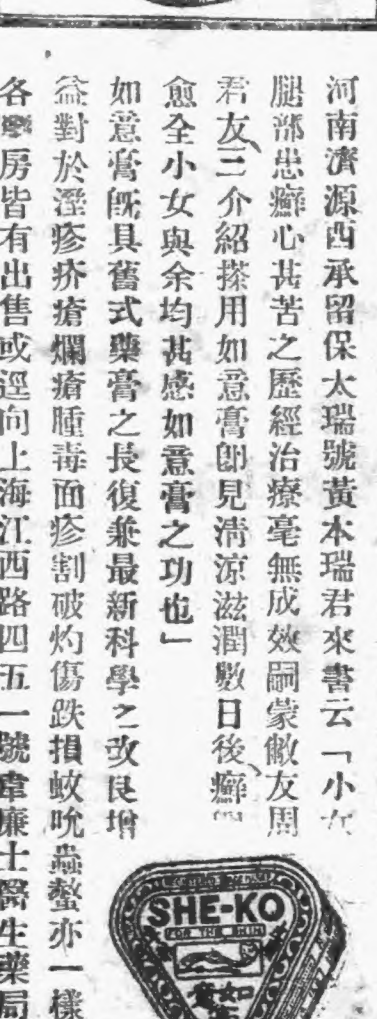 河南濟源西承留保太瑞號黃本瑞君來書云「小女
腿部患癬心甚苦之歷經治療毫無成效嗣蒙敝友周
君友三介紹搽用如意膏卽見清涼滋潤數日後癬
愈全小女與余均甚感如意膏之功也」
如意膏旣具舊式藥膏之長復兼最新科學之改良增
益對於溼疹疥瘡爛瘡腫毒面疹割破灼傷跌損蚊吮蟲螫亦一樣
各藥房皆有出售或逕向上海江西路四五一號韋廉士醫生藥局
SHE-KO
FOR THE SKIN
如意膏